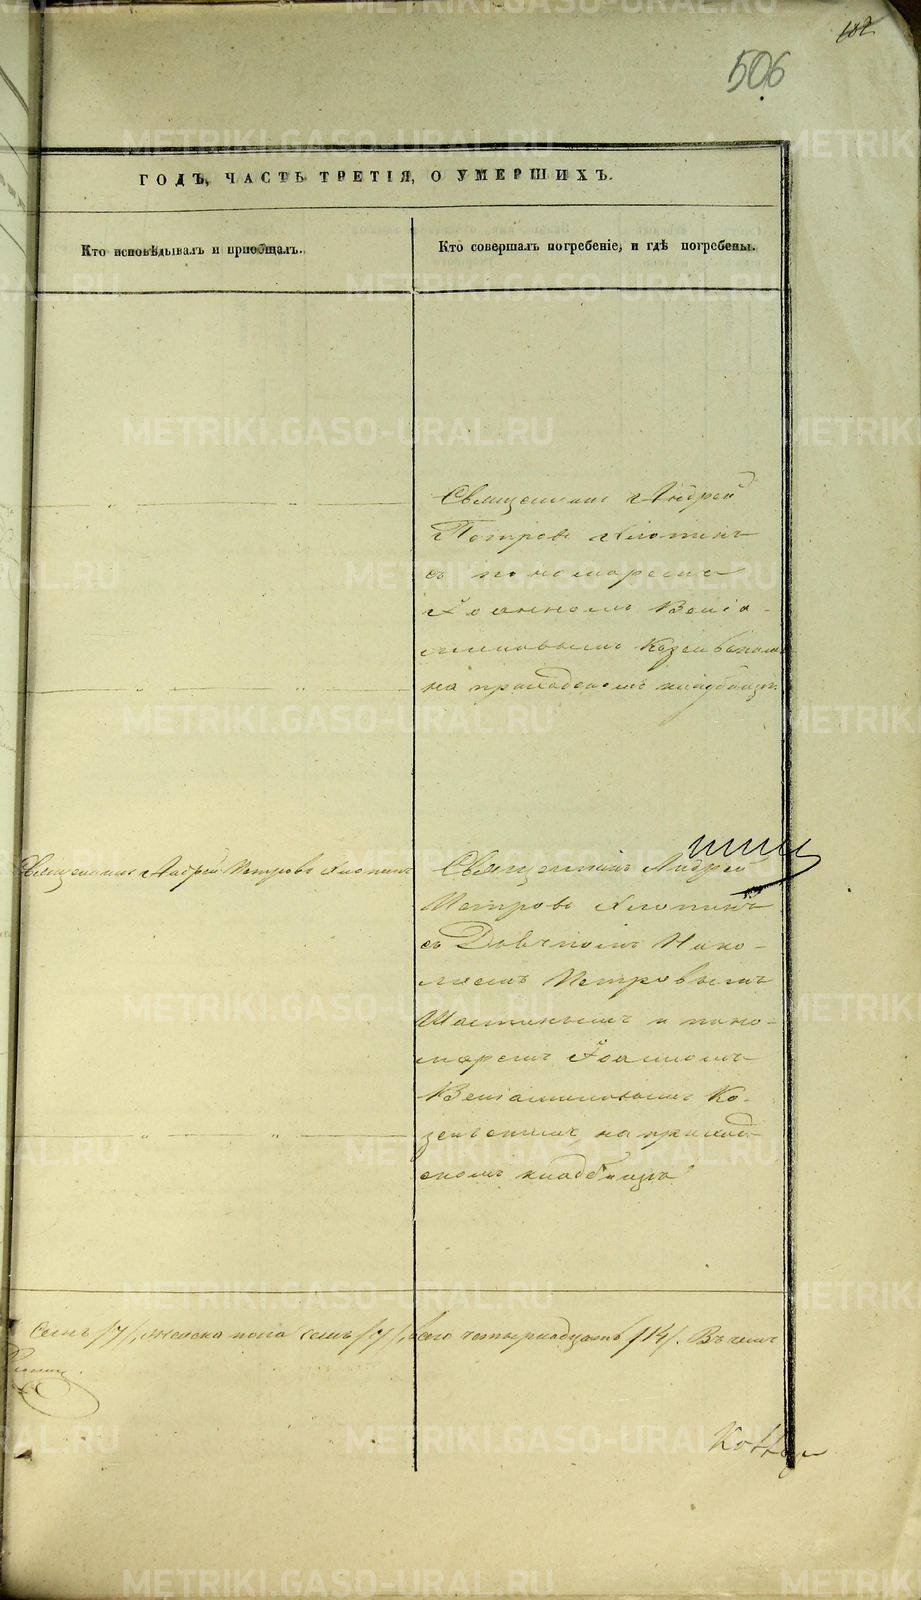 102
506
ГОДЪ, ЧАСТЬ ТРЕТІЯ, О УМЕРШИХЪ.
Кто исповѣдывалъ и пріобщалъ.
Кто совершалъ погребеніе, и гдѣ погребены.
Священникъ Андрей
Петровъ Хлопинъ
съ пономаремъ
Іоанномъ Веніа-
миновымъ
на приходскомъ кладбищѣ.
Священникъ Андрей Петровъ Хлопинъ
Священникъ Андрей
Петровъ Хлопинъ
съ Діакономъ Нико-
лаемъ Петровымъ
и поно-
маремъ Іоанномъ
Веніаминовымъ Ко-
на приход-
скомъ кладбищѣ
семь /7/, женска пола семь /7/, всего четырнадцать /14/. Въ чемъ
METRIKI.GASO-URAL.RU